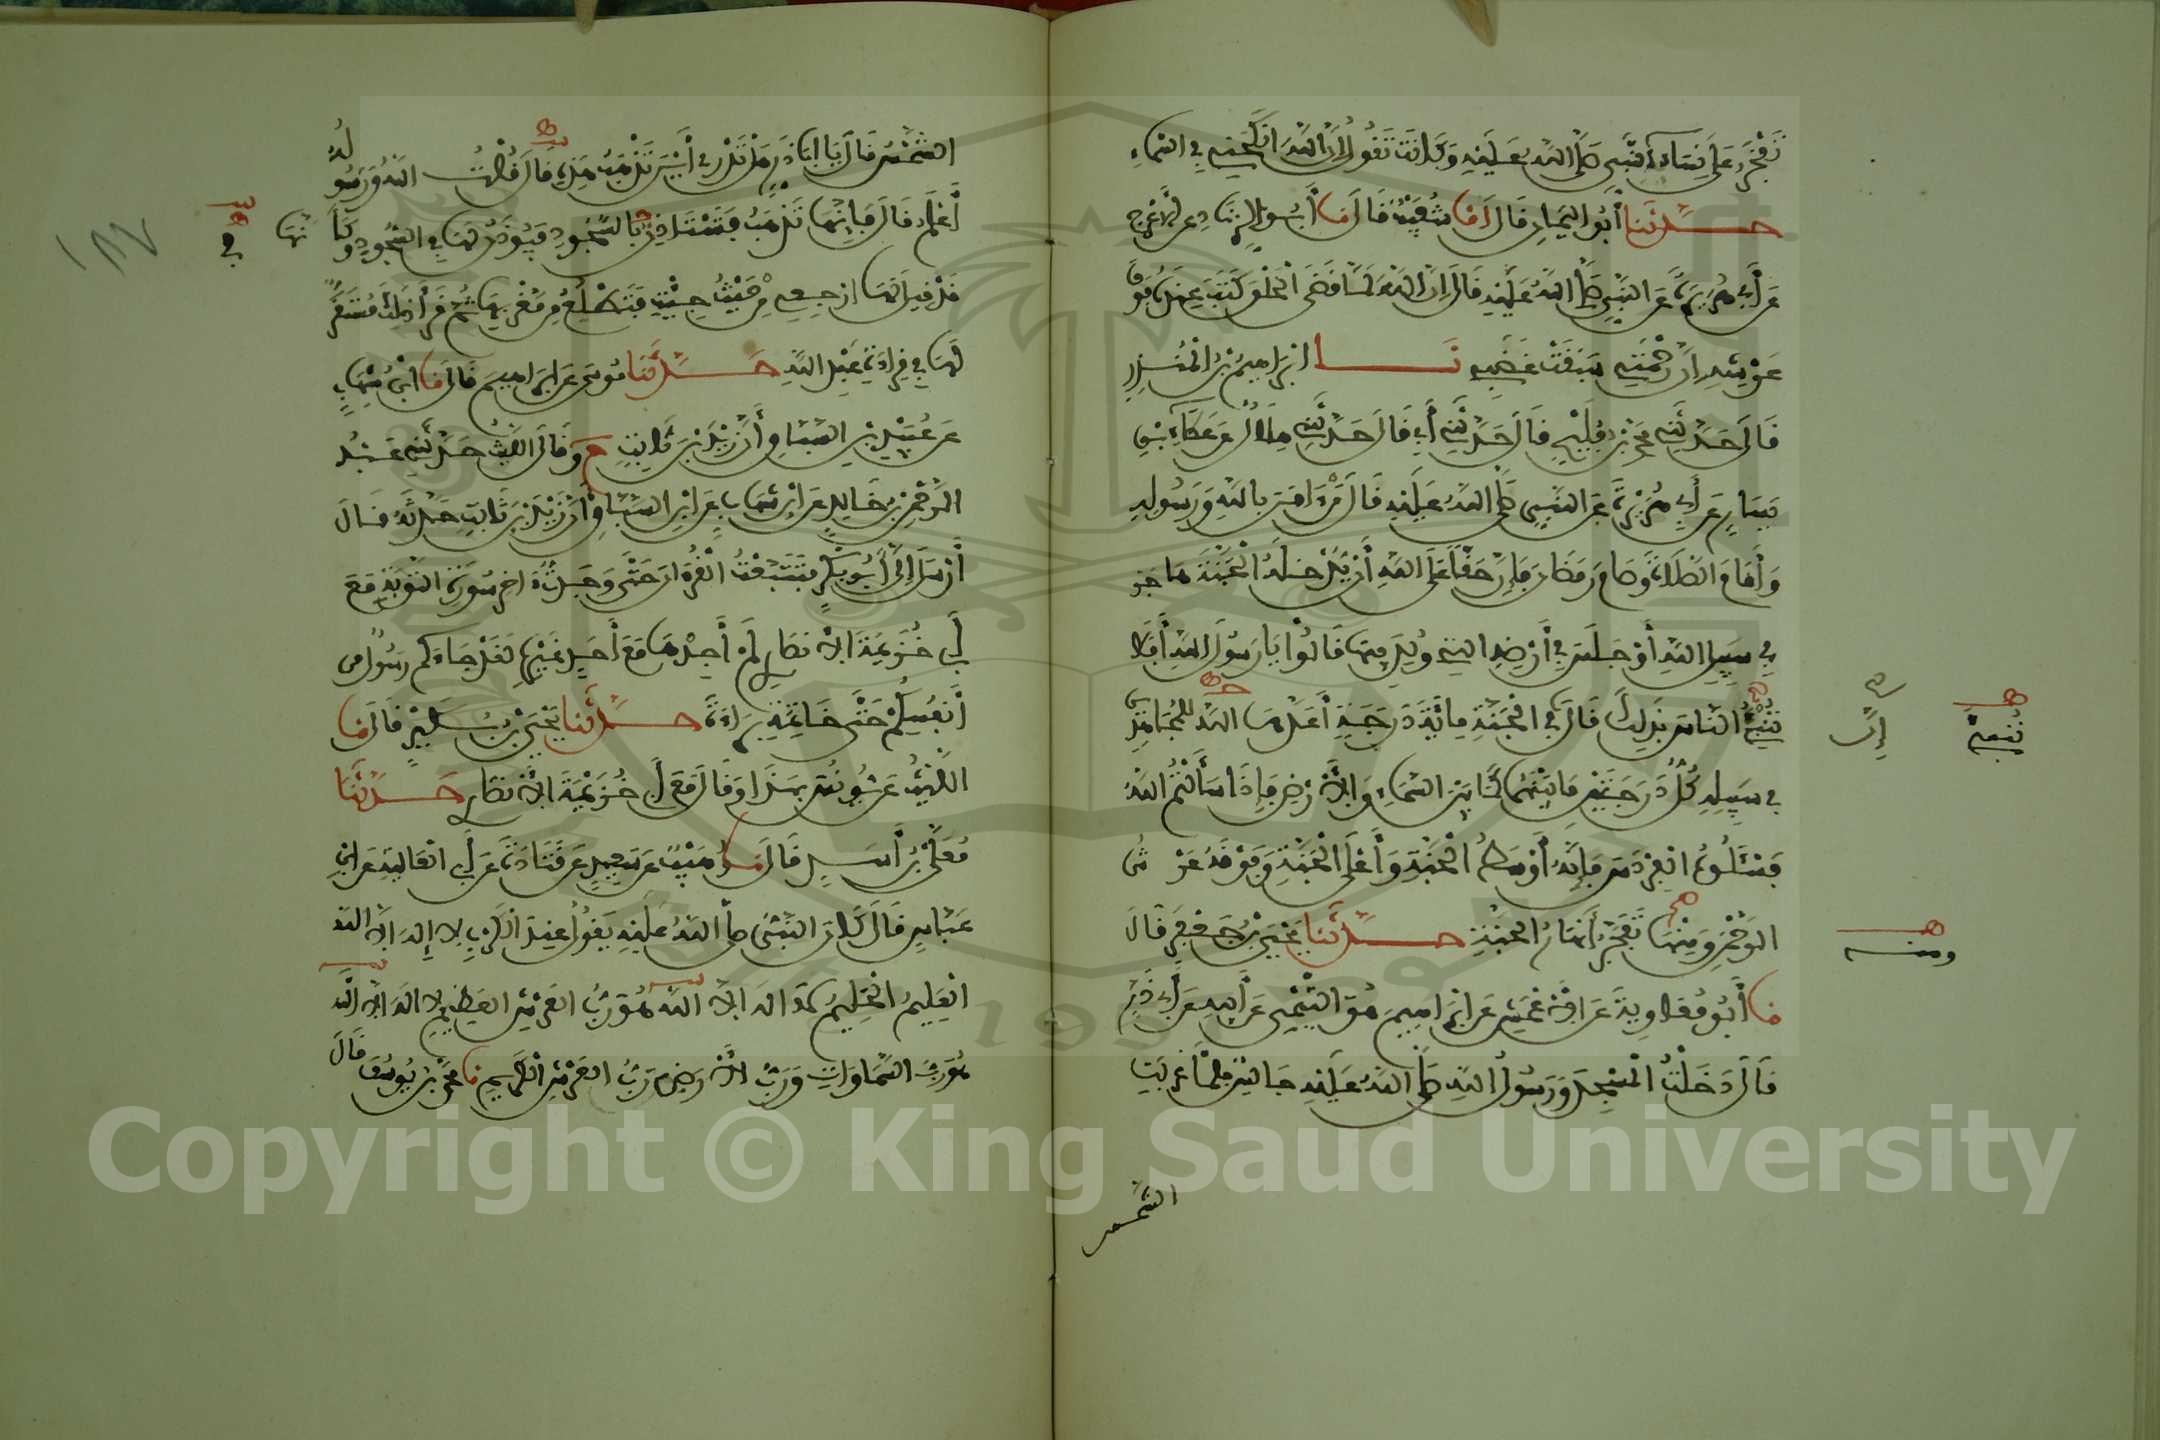 تَفْخَرُ عَلَى نِسَاءِ النَّبِيِّ صَلَّى اللهُ عَلَيْهِ وَكَانَتْ تَقُولُ إِنَّ اللهَ أَنْكَحَنِي فِي السَّمَاءِ
حَدَّثَنَا أَبُو الْيَمَانِ قَالَ أَنَا شُعَيْبٌ قَالَ نَا أَبُو الزِّنَادِ عَنِ الْأَعْرَجِ
عَنْ أَبِي هُرَيْرَةَ عَنِ النَّبِيِّ صَلَّى اللهُ عَلَيْهِ قَالَ إِنَّ اللهَ لَمَّا قَضَى الْخَلْقَ كَتَبَ عِنْدَهُ فَوْقَ
عَرْشِهِ إِنَّ رَحْمَتِي سَبَقَتْ غَضَبِي نَا إِبْرَاهِيمُ بْنُ الْمُنْذِرِ
قَالَ حَدَّثَنِي مُحَمَّدُ بْنُ فُلَيْحٍ قَالَ حَدَّثَنِي أَبِي قَالَ حَدَّثَنِي هِلَالٌ عَنْ عَطَاءِ بْنِ
يَسَارٍ عَنْ أَبِي هُرَيْرَةَ عَنِ النَّبِيِّ صَلَّى اللهُ عَلَيْهِ قَالَ مَنْ آمَنَ بِاللهِ وَرَسُولِهِ
وَأَقَامَ الصَّلَاةَ وَصَامَ رَمَضَانَ فَإِنَّ حَقًّا عَلَى اللهِ أَنْ يُدْخِلَهُ الْجَنَّةَ هَاجَرَ
فِي سَبِيلِ اللهِ أَوْ جَلَسَ فِي أَرْضِهِ الَّتِي وُلِدَ فِيهَا قَالُوا يَا رَسُولَ اللهِ أَفَلَا
نُنَبِّئُ النَّاسَ بِذَلِكَ قَالَ فِي الْجَنَّةِ مِائَةَ دَرَجَةٍ أَعَدَّهَا اللهُ لِلْمُجَاهِدِينَ
إِنَّ
فِي سَبِيلِهِ كُلُّ دَرَجَتَيْنِ مَا بَيْنَهُمَا كَمَا بَيْنَ السَّمَاءِ وَالْأَرْضِ فَإِذَا سَأَلْتُمُ اللهَ
فَسْئَلُوهُ الْفِرْدَوْسَ فَإِنَّهُ أَوْسَطُ الْجَنَّةِ وَأَعْلَى الْجَنَّةِ وَفَوْقَهُ عَرْشُ
الرَّحْمَنِ وَمِنْهَا تَفَجَّرُ أَنْهَارُ الْجَنَّةِ حَدَّثَنَا يَحْيَى بْنُ جَعْفَرٍ قَالَ
ومنه
نَا أَبُو مُعَاوِيَةَ عَنِ الْأَعْمَشِ عَنْ إِبْرَاهِيمَ هُوَ التَّيْمِيُّ عَنْ أَبِيهِ عَنْ أَبِي ذَرٍّ
قَالَ دَخَلْتُ الْمَسْجِدَ وَرَسُولُ اللهِ صَلَّى اللهُ عَلَيْهِ جَالِسٌ فَلَمَّا غَرَبَتِ
الشمس
الشَّمْسُ قَالَ يَا أَبَا ذَرٍّ هَلْ تَدْرِي أَيْنَ تَذْهَبُ هَذِهِ قَالَ قُلْتُ اللهُ وَرَسُولُهُ
أَعْلَمُ قَالَ فَإِنَّهَا تَذْهَبُ فَتَسْتَأْذِنُ بِالسُّجُودِ فَيُؤْذَنُ لَهَا فِي السُّجُودِ وَكَأَنَّهَا
في
١٨٧
قَدْ قِيلَ لَهَا ارْجِعِي مِنْ حَيْثُ جِئْتِ فَتَطْلُعُ مِنْ مَغْرِبِهَا ثُمَّ قَرَأَ ذَلِكَ مُسْتَقَرٌّ
لَهَا فِي قِرَاءَةِ عَبْدِ اللهِ حَدَّثَنَا مُوسَى عَنْ إِبْرَاهِيمَ قَالَ نَا ابْنُ شِهَابٍ
عَنْ عُبَيْدِ بْنِ السَّبَّاقِ أَنَّ زَيْدَ بْنَ ثَابِتٍ ح وَقَالَ اللَّيْثُ حَدَّثَنِي عَبْدُ
الرَّحْمَنِ بْنُ خَالِدٍ عَنِ ابْنِ شِهَابٍ عَنِ ابْنِ السَّبَّاقِ أَنَّ زَيْدَ بْنَ ثَابِتٍ حَدَّثَهُ قَالَ
أَرْسَلَ إِلَيَّ أَبُو بَكْرٍ فَتَتَبَّعْتُ الْقُرْآنَ حَتَّى وَجَدْتُ آخِرَ سُورَةِ التَّوْبَةِ مَعَ
أَبِي خُزَيْمَةَ الْأَنْصَارِيِّ لَمْ أَجِدْهَا مَعَ أَحَدٍ غَيْرِهِ لَقَدْ جَاءَكُمْ رَسُولٌ مِنْ
أَنْفُسِكُمْ حَتَّى خَاتِمَةِ بَرَاءَةٌ حَدَّثَنَا يَحْيَى بْنُ بُكَيْرٍ قَالَ نَا
اللَّيْثُ عَنْ يُونُسَ بِهَذَا وَقَالَ مَعَ أَبِي خُزَيْمَةَ الْأَنْصَارِيِّ حَدَّثَنَا
مُعَلَّى بْنُ أَسَدٍ قَالَ نَا وُهَيْبٌ عَنْ سَعِيدٍ عَنْ قَتَادَةَ عَنْ أَبِي الْعَالِيَةِ عَنِ ابْنِ
عَبَّاسٍ قَالَ كَانَ النَّبِيُّ صَلَّى اللهُ عَلَيْهِ يَقُولُ عِنْدَ الْكَرْبِ لَا إِلَهَ إِلَّا اللهُ
الْعَلِيمُ الْحَلِيمُ لَا إِلَهَ إِلَّا اللهُ هُوَ رَبُّ الْعَرْشِ الْعَظِيمِ لَا إِلَهَ إِلَّا اللهُ
هُوَ رَبُّ السَّمَاوَاتِ وَرَبُّ الْأَرْضِ رَبُّ الْعَرْشِ الْكَرِيمِ نَا مُحَمَّدُ بْنُ يُوسُفَ قَالَ
Copyright © King Saud University